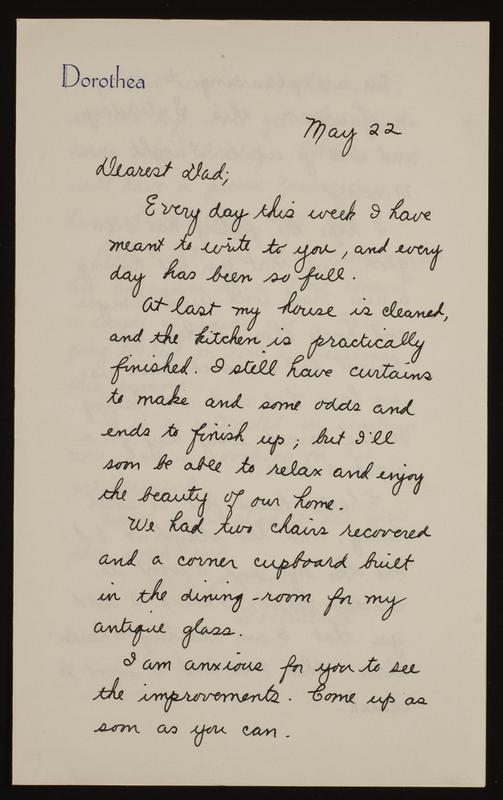 Dorothea
May 22
Dearest Dad;
Every day this week I have
meant to write to you, and every
day has been so full.
At last my house is cleaned,
and the kitchen is practically
finished. I still have curtains
to make and some odds and
ends to finish up; but I'll
soon be able to relax and enjoy
the beauty of our home.
We had two chairs recovered
and a corner cupboard built
in the dining-room for my
antique glass.
I am anxious for you to see
the improvements. Come up as
soon as you can.